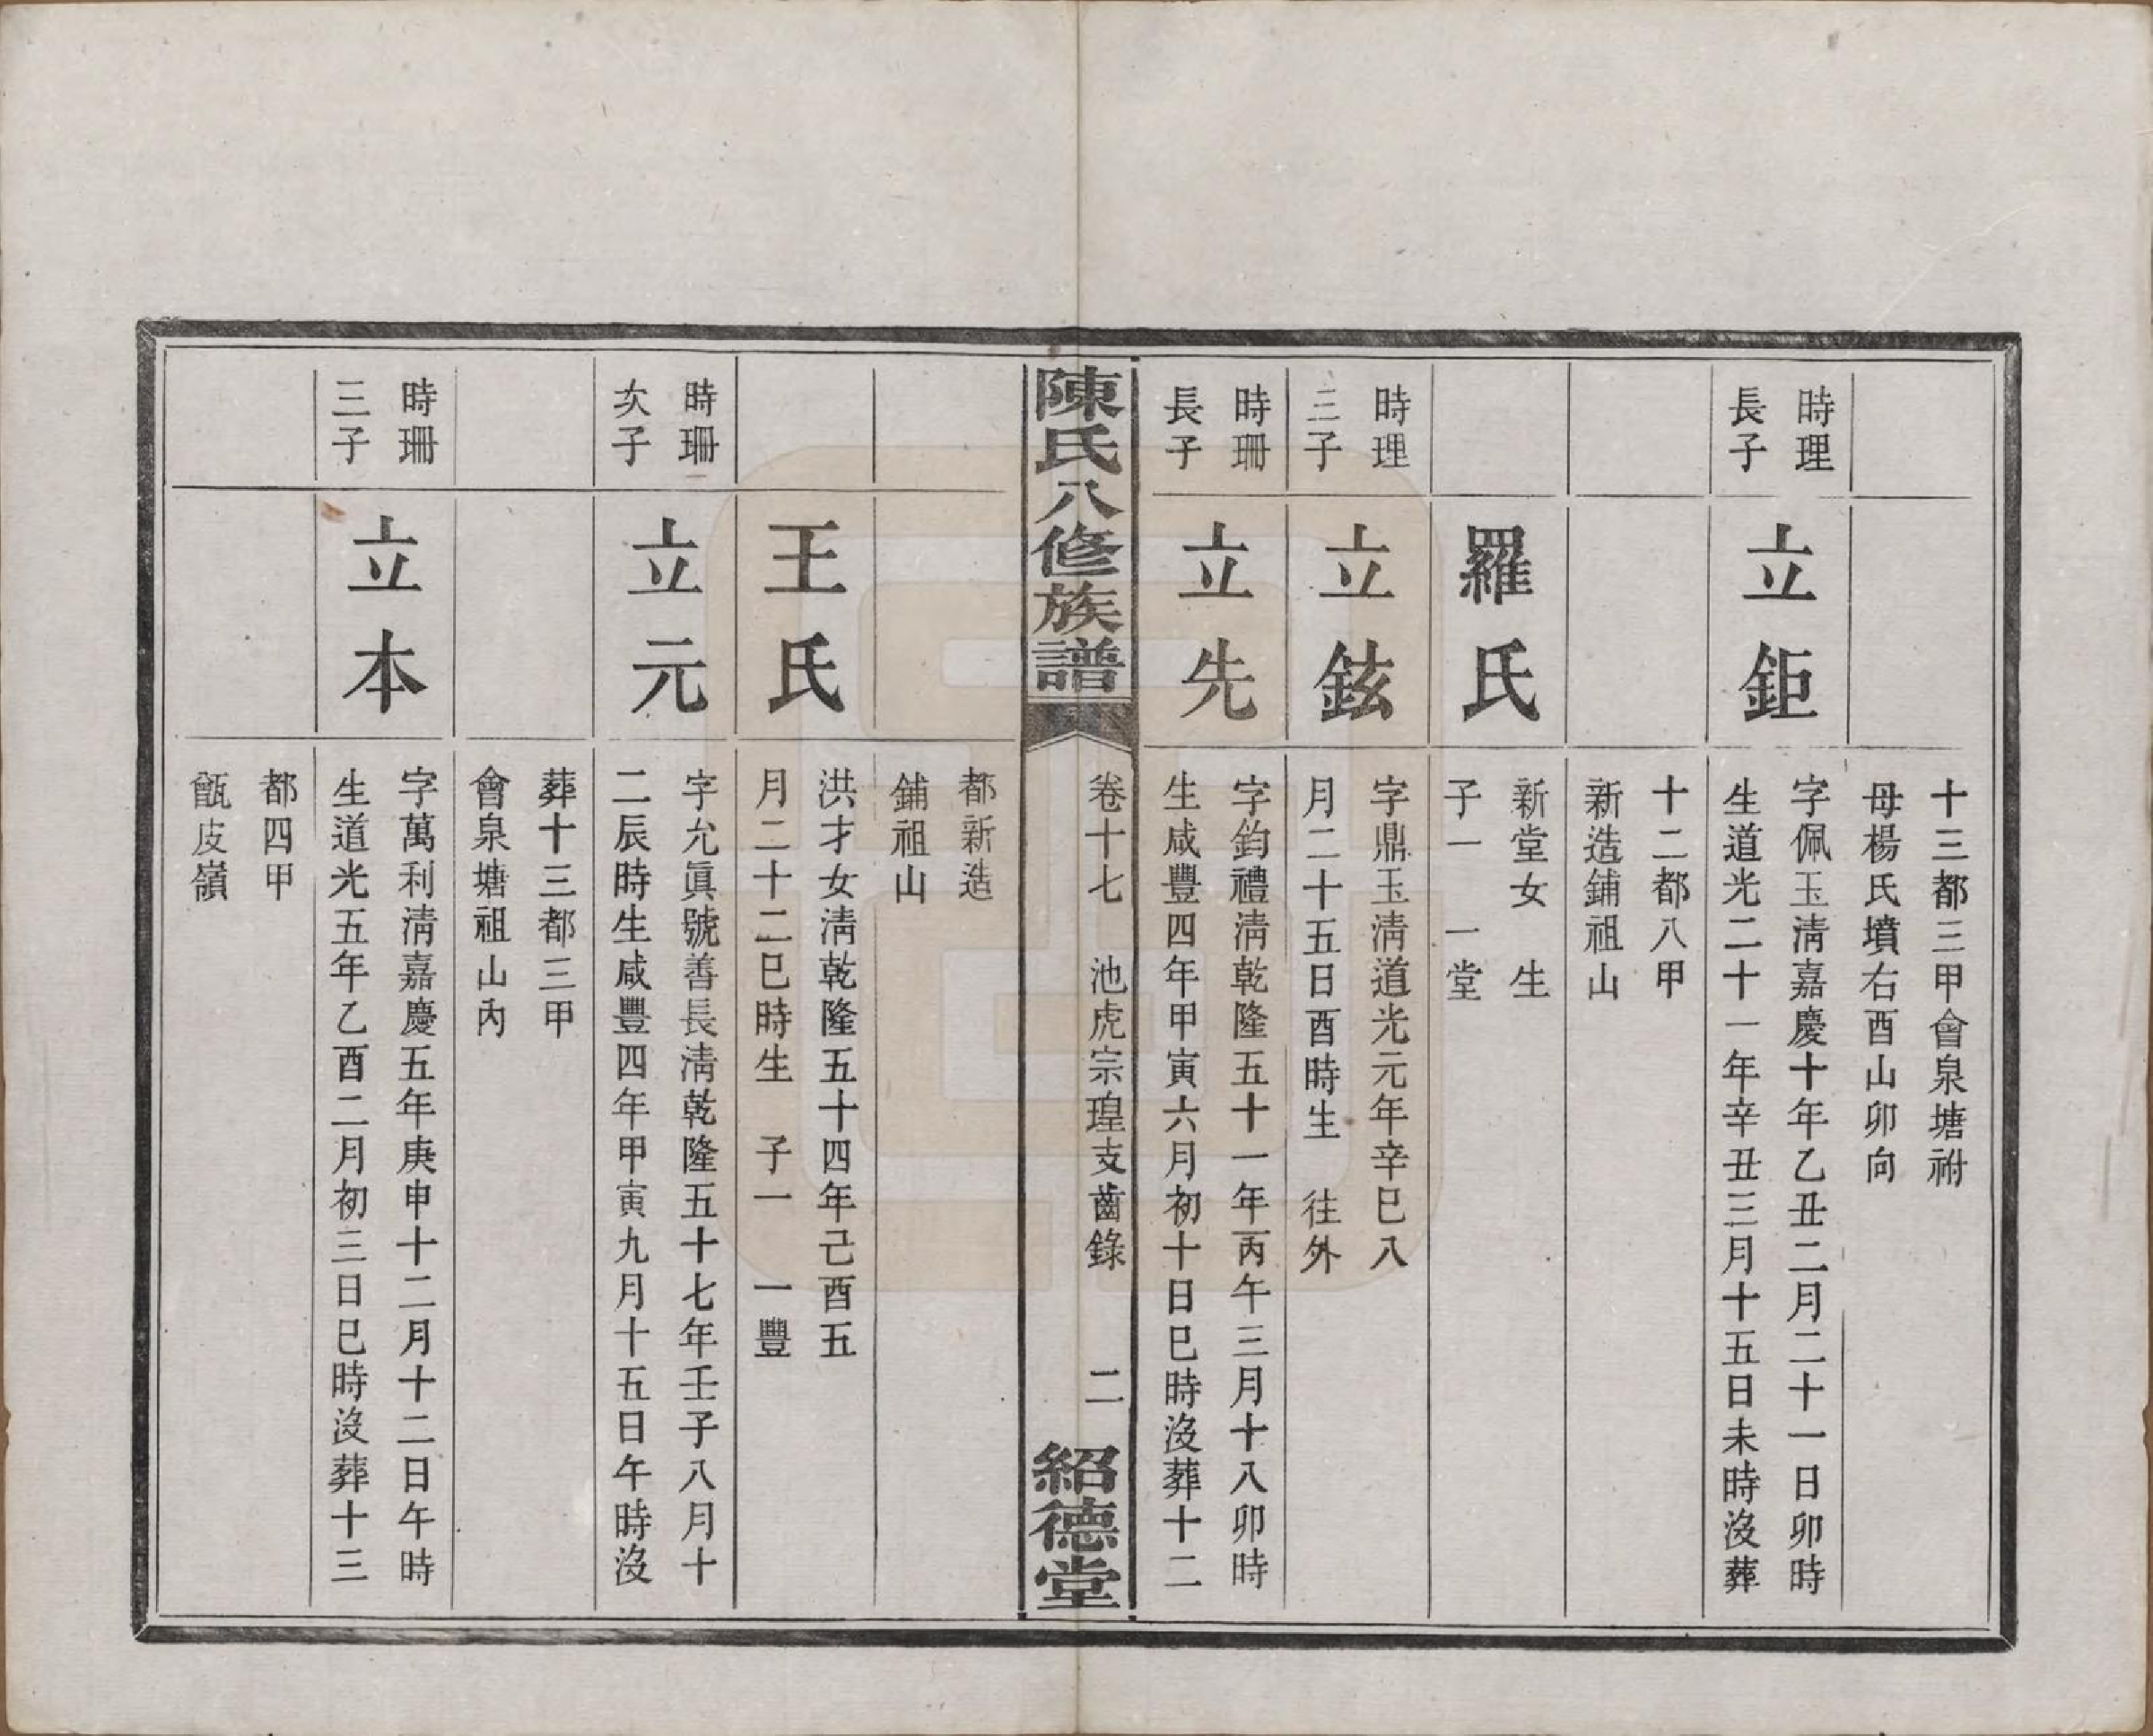 十三都三甲會泉塘祔
母楊氏墳右酉山卯向
時理
長子
立鉅
字佩玉淸嘉慶十年乙丑二月二十一日卯時
生道光二十一年辛丑三月十五日未時沒葬
十二都八甲
新造鋪祖山
羅氏
新堂女 生
子一 一堂
時理
三子
立鉉
字鼎玉淸道光元年辛巳八
月二十五日酉時生 往外
時珊
長子
立先
字鈞禮淸乾隆五十一年丙午三月十八卯時
生咸豐四年甲寅六月初十日巳時沒葬十二
陳氏八修族譜
卷十七 池虎宗瑝支齒錄 二
紹德堂
都新造
鋪祖山
王氏
洪才女淸乾隆五十四年己酉五
月二十二巳時生 子一 一豐
時珊
次子
立元
字允眞號善長淸乾隆五十七年壬子八月十
二辰時生咸豐四年甲寅九月十五日午時沒
葬十三都三甲
會泉塘祖山內
時珊
三子
立本
字萬利淸嘉慶五年庚申十二月十二日午時
生道光五年乙酉二月初三日巳時沒葬十三
都四甲
甑皮嶺